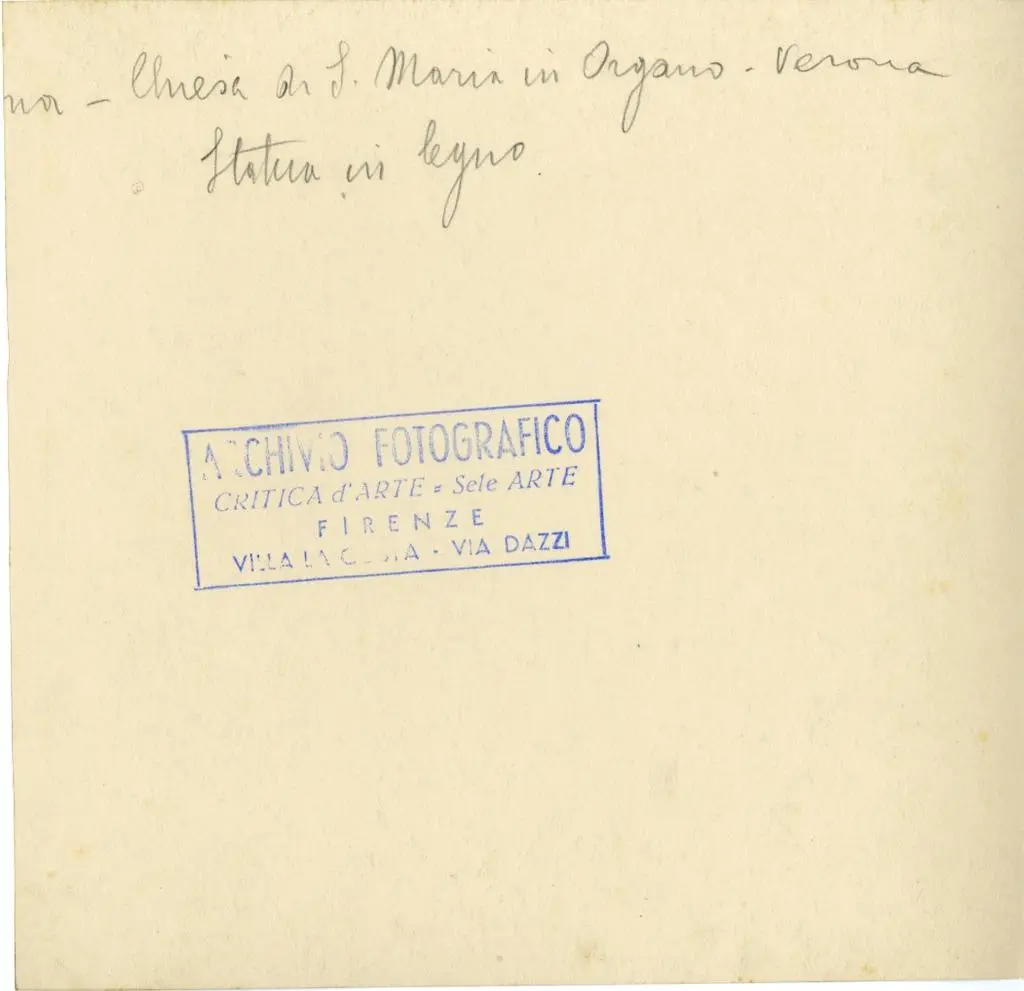 – Chiesa di S. Maria in Organo - Verona
Statua in legno
ARCHIVIO FOTOGRAFICO
CRITICA d'ARTE = Sele ARTE
FIRENZE
VILLA LA - VIA DAZZI